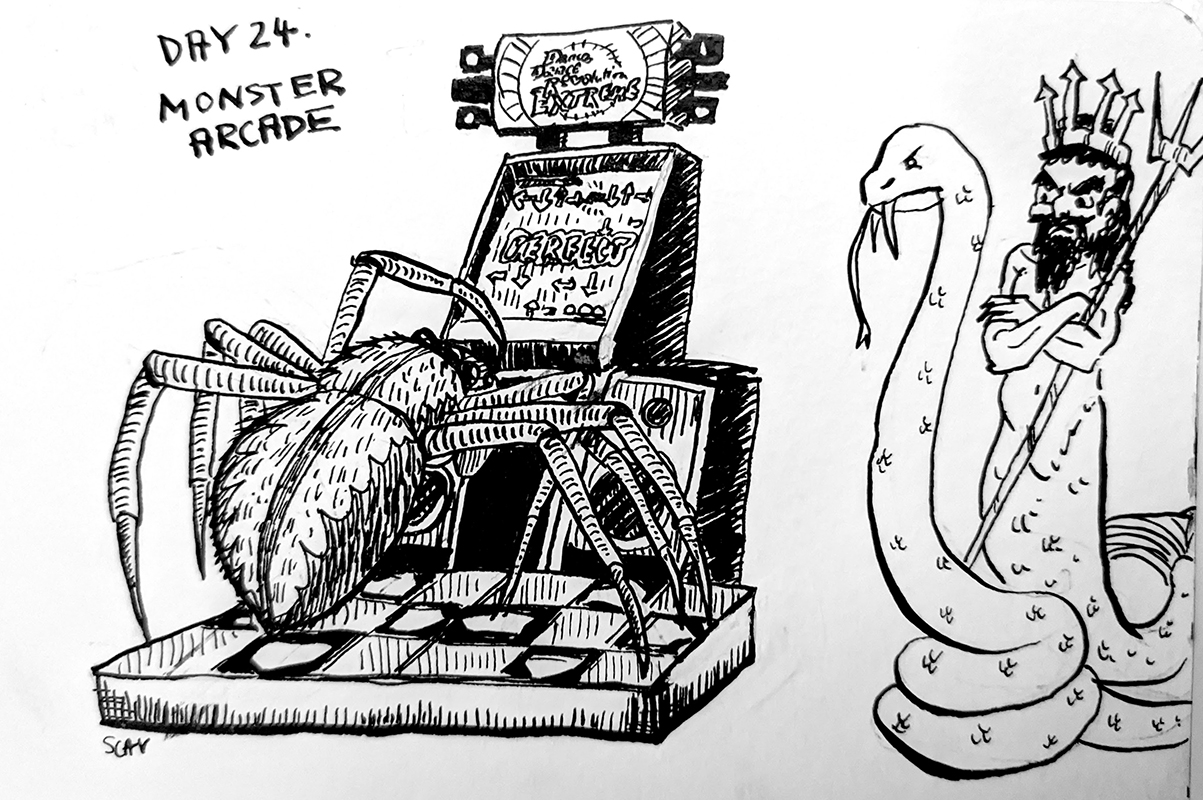 DAY 24.
MONSTER
ARCADE
Dance
Dance
Revolution
EXTREME
PERFECT
SCAV